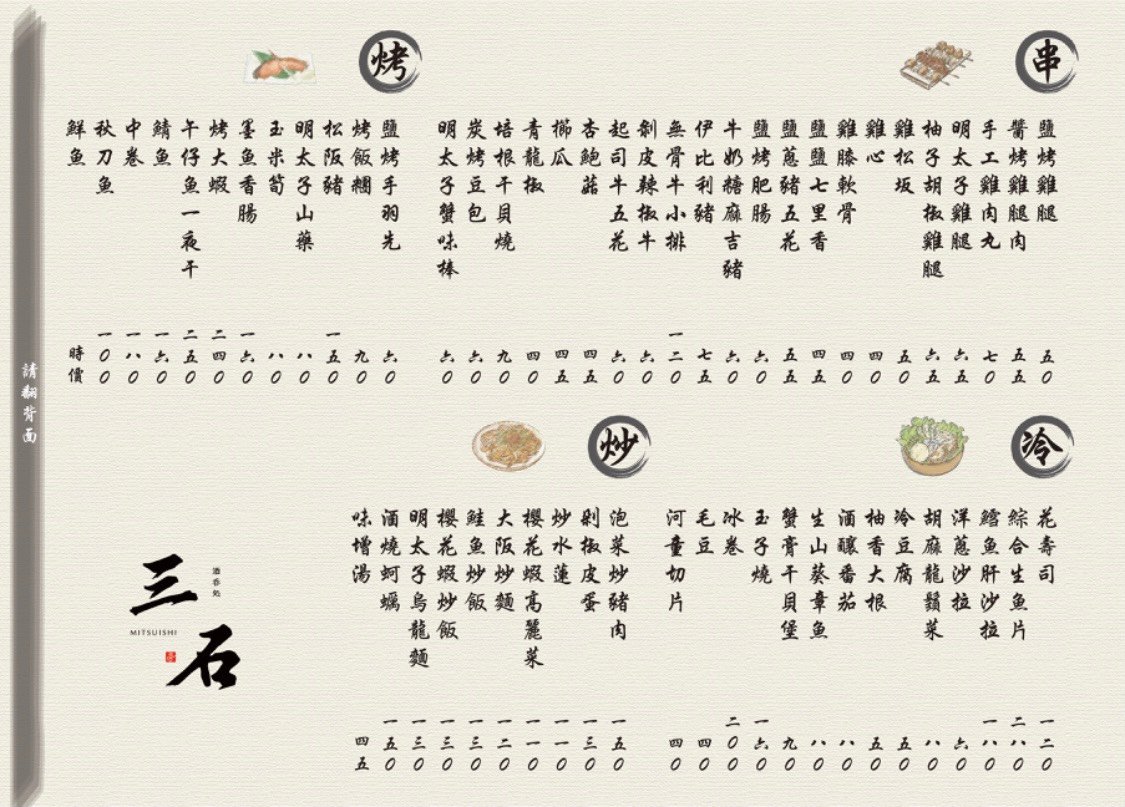 串
鹽烤雞腿 五0
醬烤雞腿肉 五五
手工雞肉丸 七0
明太子雞腿 六五
柚子胡椒雞腿 六五
雞松坂 五0
雞心 四0
雞膝軟骨 四0
鹽鹽七里香 四五
鹽蔥豬五花 五五
鹽烤肥腸 六0
牛奶糖麻吉豬 六0
伊比利豬 七五
無骨牛小排 一二0
剝皮辣椒牛 六0
起司牛五花 六0
杏鮑菇 四五
櫛瓜 四五
青龍椒 四0
培根干貝燒 九0
炭烤豆包 六0
明太子蟹味棒 六0
烤
鹽烤手羽先 六0
烤飯糰 九0
松阪豬 一五0
明太子山藥 八0
玉米筍 八0
墨魚香腸 一六0
烤大蝦 二四0
午仔魚一夜干 二五0
鯖魚 一六0
中卷 一八0
秋刀魚 一00
鮮魚 時價
冷
花壽司 一二0
綜合生魚片 二八0
鱈魚肝沙拉 一八0
洋蔥沙拉 六0
胡麻龍鬚菜 八0
冷豆腐 五0
柚香大根 五0
酒釀番茄 八0
生山葵章魚 八0
蟹膏干貝堡 九0
玉子燒 一六0
冰卷 二00
毛豆 四0
河童切片 四0
炒
泡菜炒豬肉 一五0
剁椒皮蛋 一三0
炒水蓮 一一0
櫻花蝦高麗菜 一一0
大阪炒麵 一二0
鮭魚炒飯 一三0
櫻花蝦炒飯 一三0
明太子烏龍麵 一三0
酒燒蚵蠣 一五0
味增湯 四五
酒吞処
三石
MITSUISHI
請翻背面